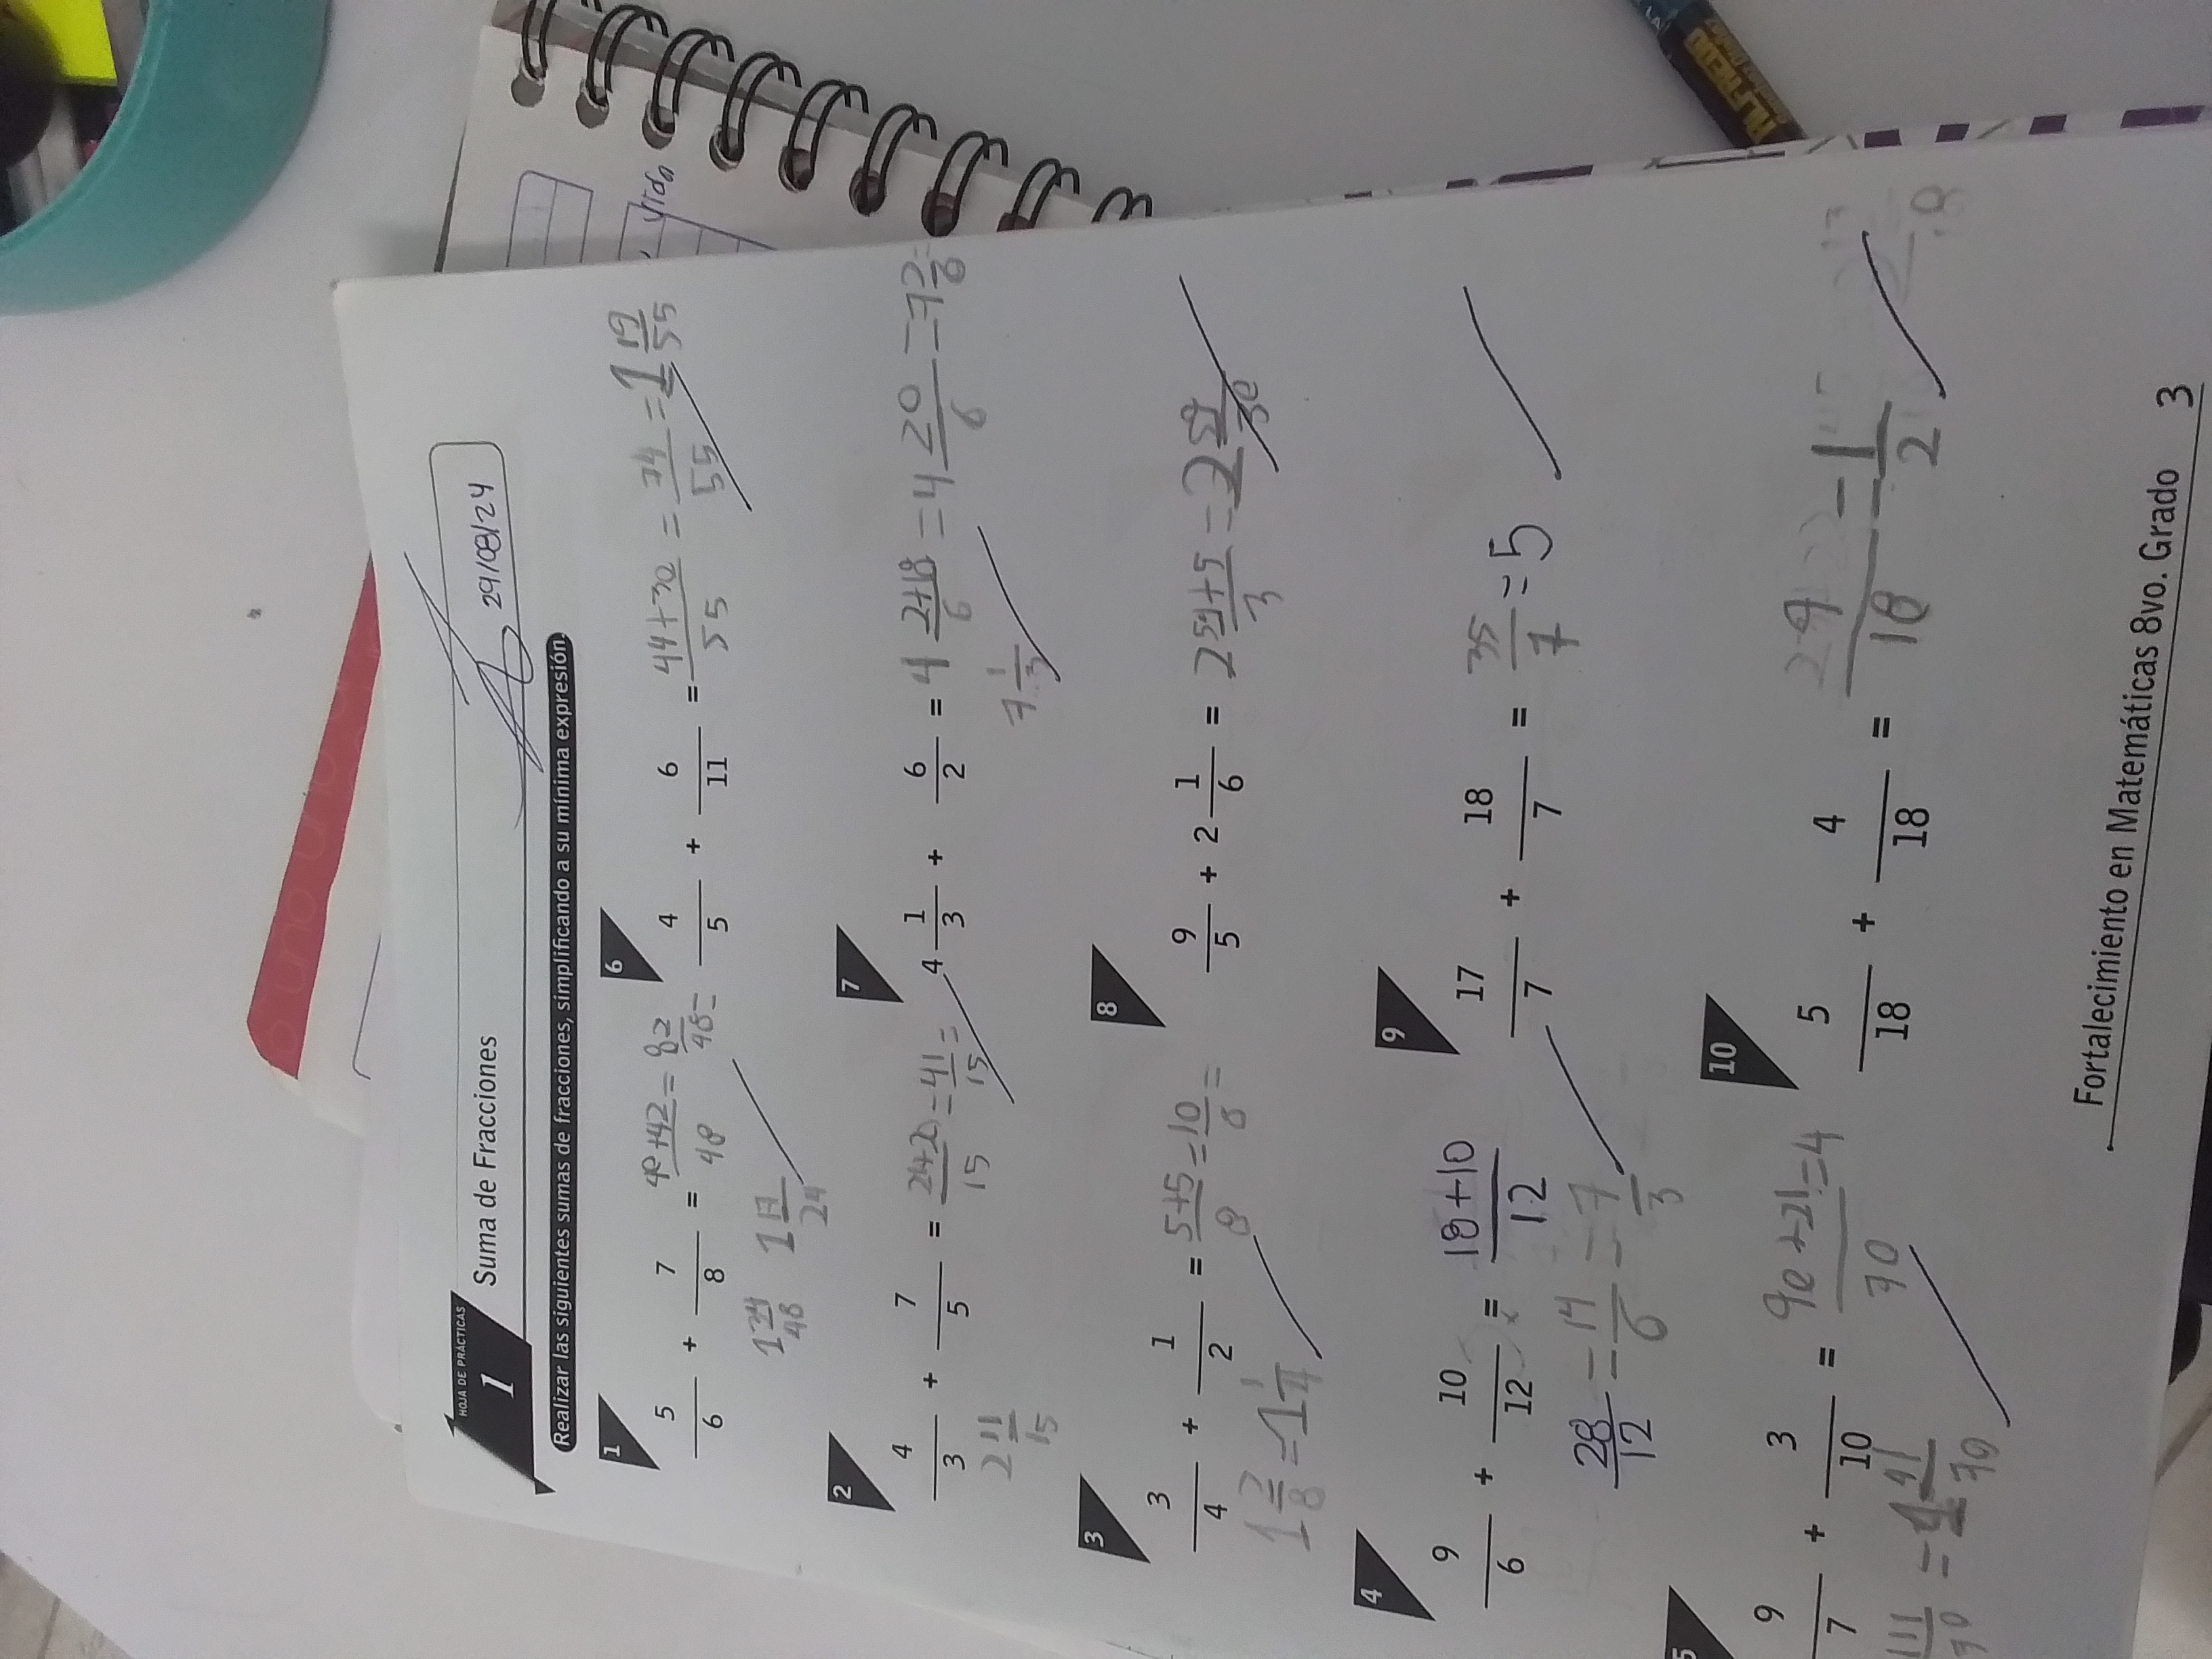 HOJA DE PRÁCTICAS
1
Suma de Fracciones
29/08/24
Realizar las siguientes sumas de fracciones, simplificando a su mínima expresión.
1
5/6 + 7/8 = 40+42/48 = 82/48 =
1 34/48 1 17/24
2
4/3 + 7/5 = 41/15 =
2 11/15
3
3/4 + 1/2 = 5+5/8 = 10/8 =
1 2/8 = 1 1/4
4
9/6 + 10/12 = 18+10/12
28/12 = 14/6 = 7/3
5
9/7 + 3/10 = 90+21/70 =
111/70 = 1 41/70
6
4/5 + 6/11 = 44+30/55 = 74/55 = 1 19/55
7
4 1/3 + 6/2 = 4 2+18/6 = 4 20/6 = 7 2/6
7 1/3
8
9/5 + 2 1/6 =
9
17/7 + 18/7 = 35/7 = 5
10
5/18 + 4/18 = 1/2
Fortalecimiento en Matemáticas 8vo. Grado 3
Vida
ALFRED